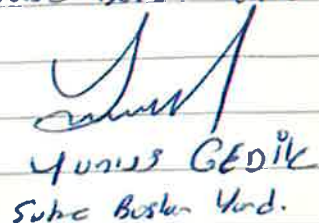 Yunus GEDİK
Şube Başkan Yard.